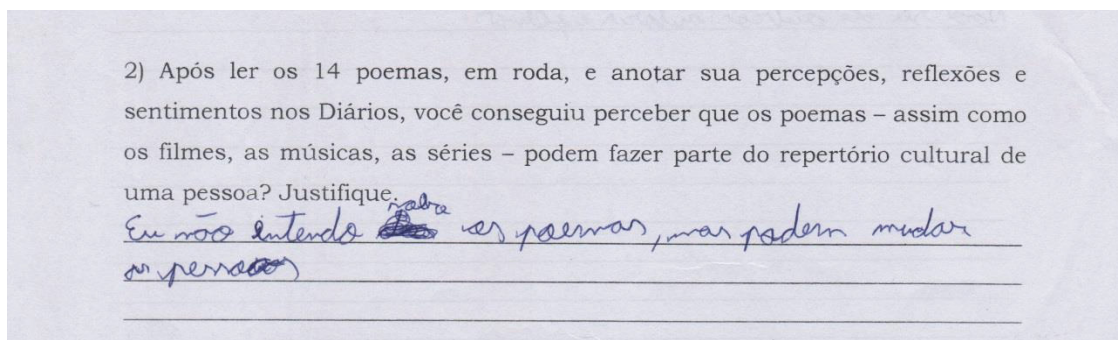 2) Após ler os 14 poemas, em roda, e anotar sua percepções, reflexões e
sentimentos nos Diários, você conseguiu perceber que os poemas – assim como
os filmes, as músicas, as séries – podem fazer parte do repertório cultural de
uma pessoa? Justifique.
sobre
Eu não intendo os poemas, mas podem mudar
as pessoas